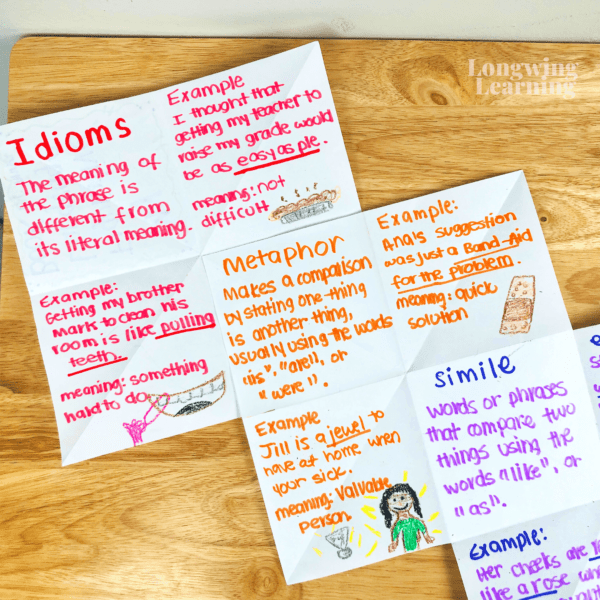 Longwing
Learning
Idioms
The meaning of
the phrase is
different from
its literal meaning.
Example
I thought that
getting my teacher to
raise my grade would
be as easy as pie.
meaning: not
difficult
Example:
Getting my brother
Mark to clean his
room is like pulling
teeth.
meaning: something
hard to do
Metaphor
Makes a comparison
by stating one thing
is another thing,
usually using the words
"is", "are", or
"were".
Example:
Ana's suggestion
was just a Band-Aid
for the problem.
meaning: quick
solution
Example
Jill is a jewel to
have at home when
your sick.
meaning: Valuable
person
simile
words or phrases
that compare two
things using the
words "like", or
"as".
Example:
Her cheeks are
like a rose